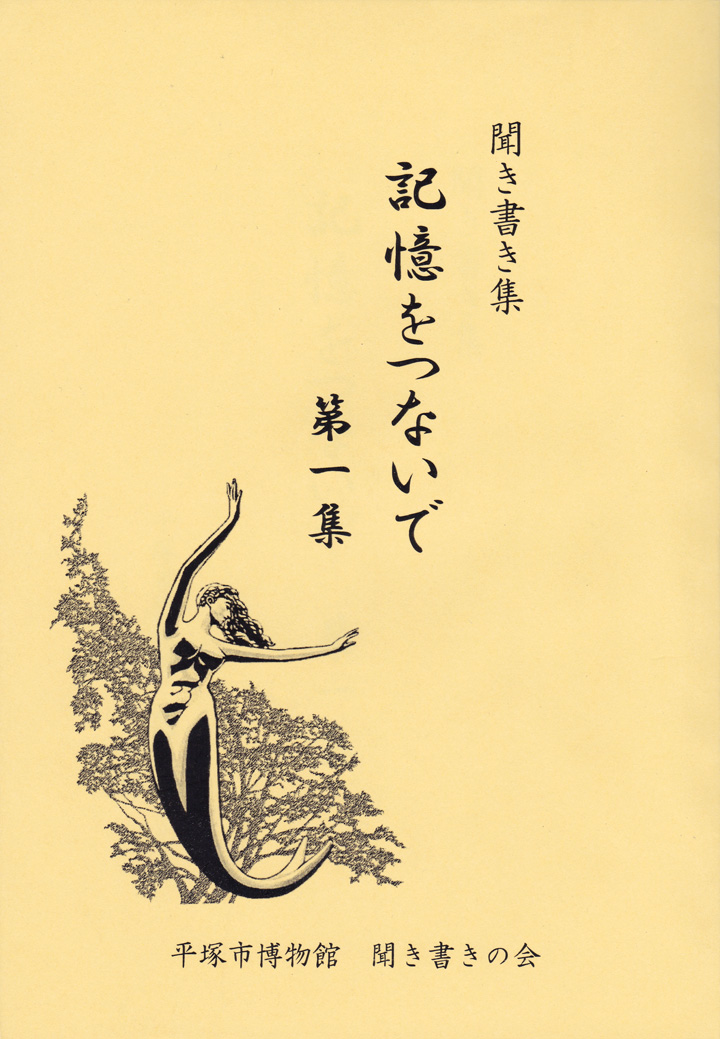 聞き書き集
記憶をつないで
第一集
平塚市博物館　聞き書きの会